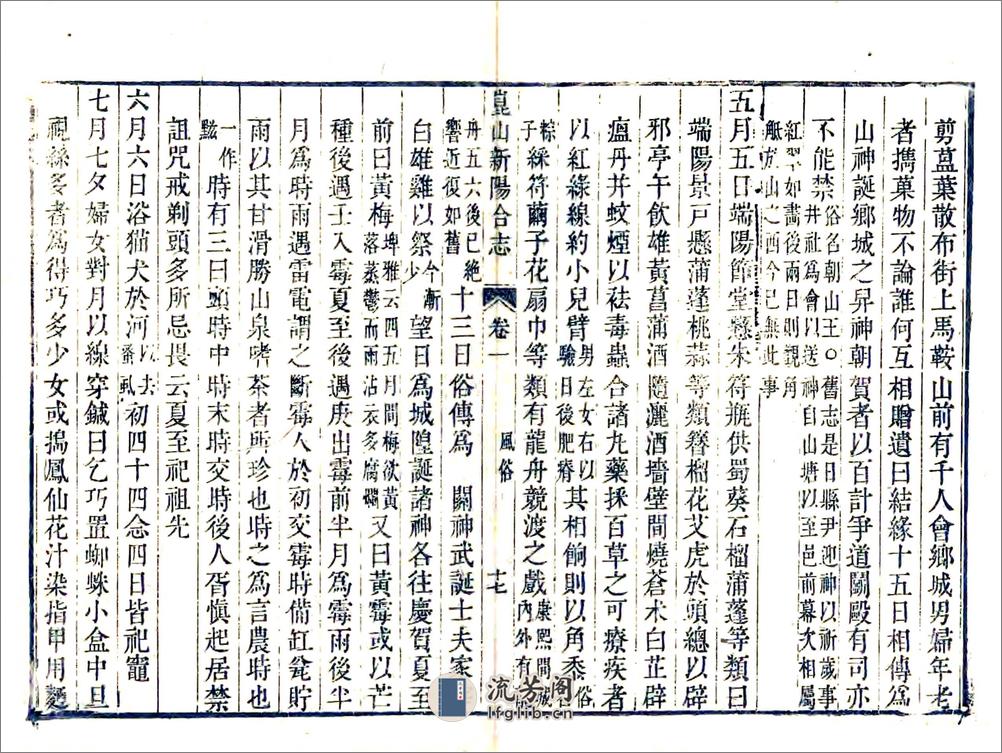 剪葍葉散布街上馬鞍山前有千人會鄉城男婦年老
者攜菓物不論誰何互相贈遺曰結緣十五日相傳爲
山神誕鄉城之昇神朝賀者以百計爭道鬬毆有司亦
不能禁俗名朝山王〇舊志是日縣尹迎神以祈歲事井社爲會以送神自山塘以至邑前幕次相屬
紅翠如畵後兩日則觀角觝於山之西今已無此事
五月五日端陽節堂縣朱符瓶供蜀葵石榴蒲蓬等類曰
端陽景戸懸蒲蓬桃蒜等類簪榴花艾虎於頭總以辟
邪亭午飲雄黃菖蒲酒隨灑酒墻壁間燒蒼朮白芷辟
瘟丹幷蚊煙以祛毒蟲合諸九藥採百草之可療疾者
以紅綠線約小兒臂男左女右以驗日後肥瘠其相餉則以角黍俗
糉子綵符繭子花扇巾等類有龍舟競渡之戲康熙間城內外有
崑山新陽合志 卷一 風俗 十七
舟五六後已絶響近復如舊十三日俗傳爲 關神武誕士夫家
白雄雞以祭今漸少望日爲城隍誕諸神各往慶賀夏至
前曰黃梅埤雅云四五月間梅欲黃落蒸鬱而雨沾衣多腐爛又曰黃霉或以芒
種後遇壬入霉夏至後遇庚出霉前半月爲霉雨後半
月爲時雨遇雷電謂之斷霉人於初交霉時備缸瓮貯
雨以其甘滑勝山泉嗜茶者所珍也時之爲言農時也
一作黰時有三曰頭時中時末時交時後人胥愼起居禁
詛咒戒剃頭多所忌畏云夏至祀祖先
六月六日浴猫犬於河以去蚤虱初四十四念四日皆祀竈
七月七夕婦女對月以線穿鍼曰乞巧置蜘蛛小盒中旦
視絲多者爲得巧多少女或搗鳳仙花汁染指甲用麵
流芳阁
lfglib.com